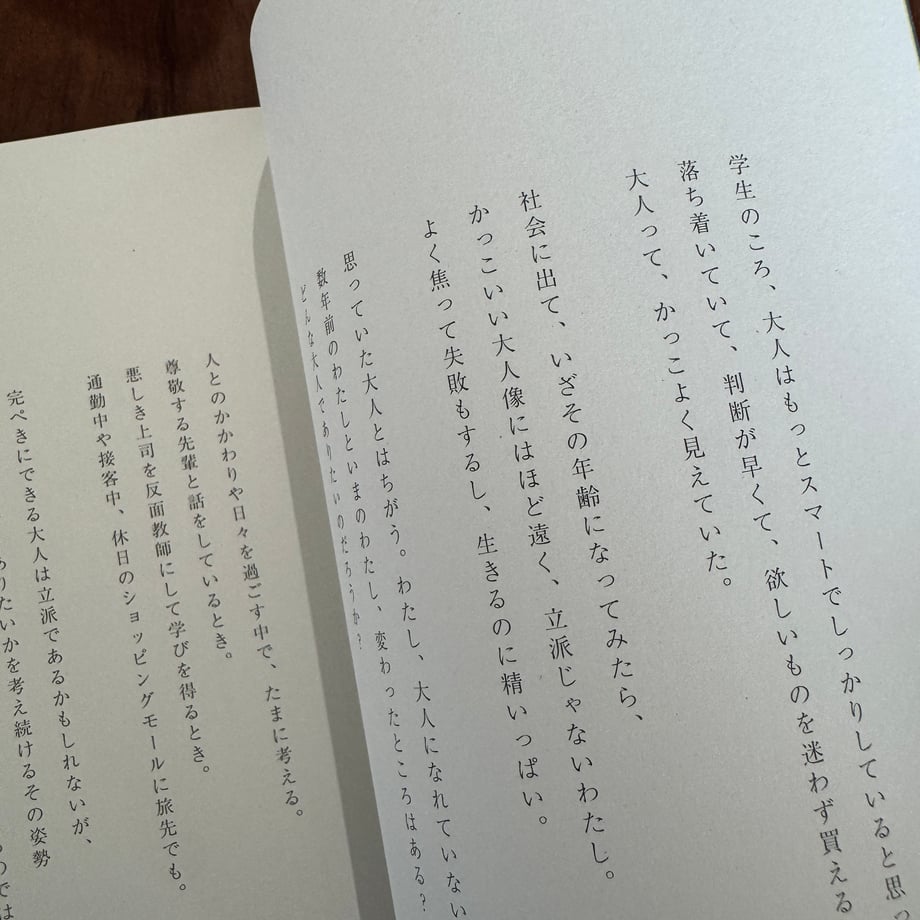 学生のころ、大人はもっとスマートでしっかりしていると思っ
落ち着いていて、判断が早くて、欲しいものを迷わず買える
大人って、かっこよく見えていた。
社会に出て、いざその年齢になってみたら、
かっこいい大人像にはほど遠く、立派じゃないわたし。
よく焦って失敗もするし、生きるのに精いっぱい。
思っていた大人とはちがう。わたし、大人になれていない
数年前のわたしといまのわたし、変わったところはある?
どんな大人でありたいのだろうか?
人とのかかわりや日々を過ごす中で、たまに考える。
尊敬する先輩と話をしているとき。
悪しき上司を反面教師にして学びを得るとき。
通勤中や接客中、休日のショッピングモールに旅先でも。
完ぺきにできる大人は立派であるかもしれないが、
ありたいかを考え続けるその姿勢
のでは